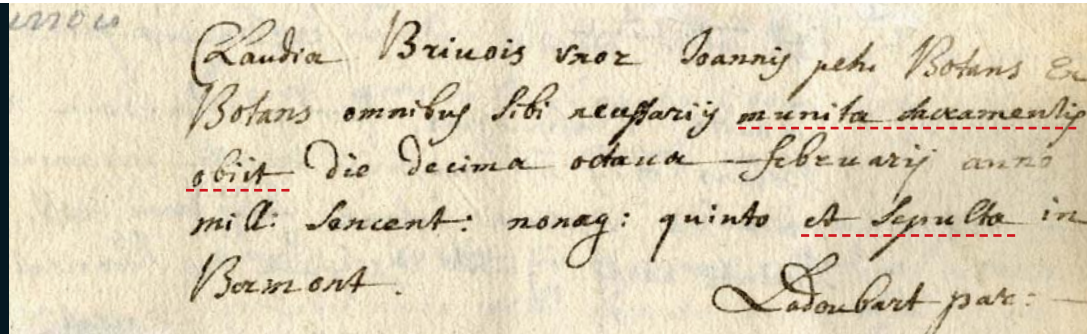 Claudia Briuois vxor Joannis peti Botans Ex
Botans omnibus sibi necessariis munita sacramentis
obiit die decima octaua februarij anno
mill: sexcent: nonag: quinto et sepulta in
Bermont.
Ladoubart par: